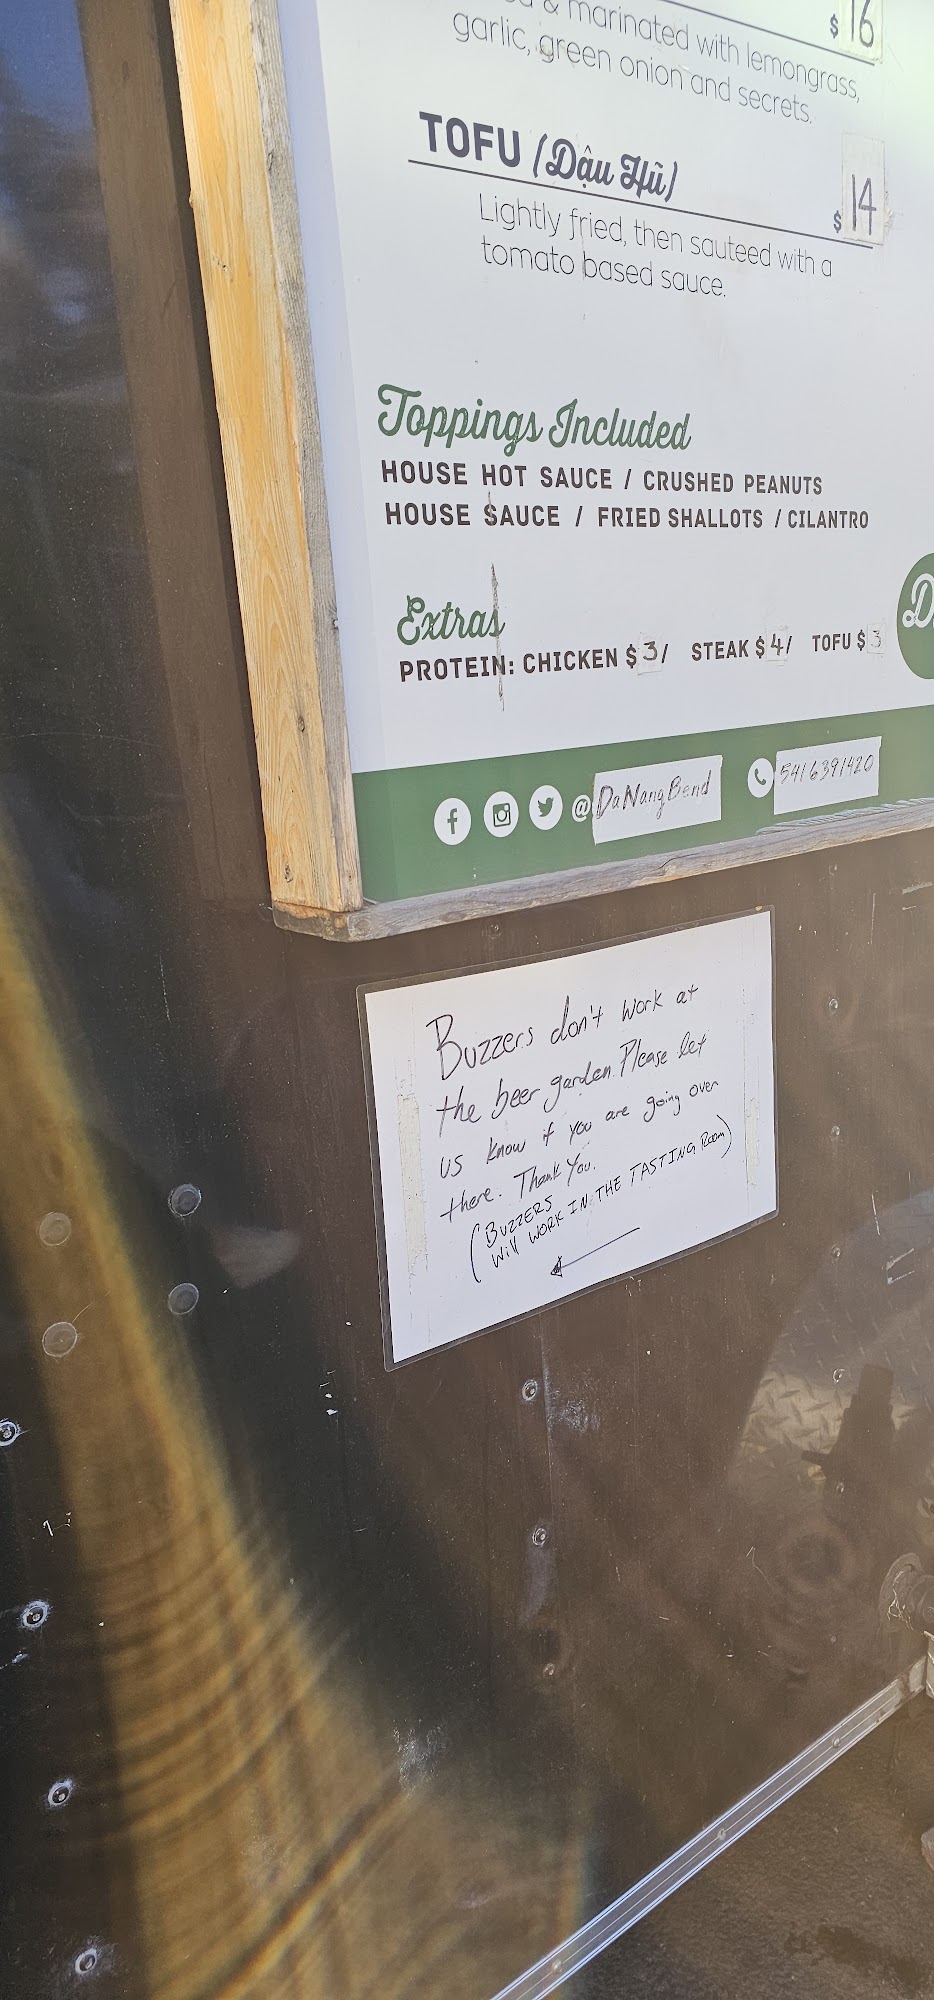 & marinated with lemongrass,
$ 16
garlic, green onion and secrets.
TOFU (Dậu Hũ)
$ 14
Lightly fried, then sauteed with a
tomato based sauce.
Toppings Included
HOUSE HOT SAUCE / CRUSHED PEANUTS
HOUSE SAUCE / FRIED SHALLOTS / CILANTRO
Extras
PROTEIN: CHICKEN $ 3/ STEAK $ 4/ TOFU $ 3
@DaNangBend
5416391420
Buzzers don't work at
the beer garden. Please let
us know if you are going over
there. Thank You.
(BUZZERS
Will WORK IN THE TASTING Room)